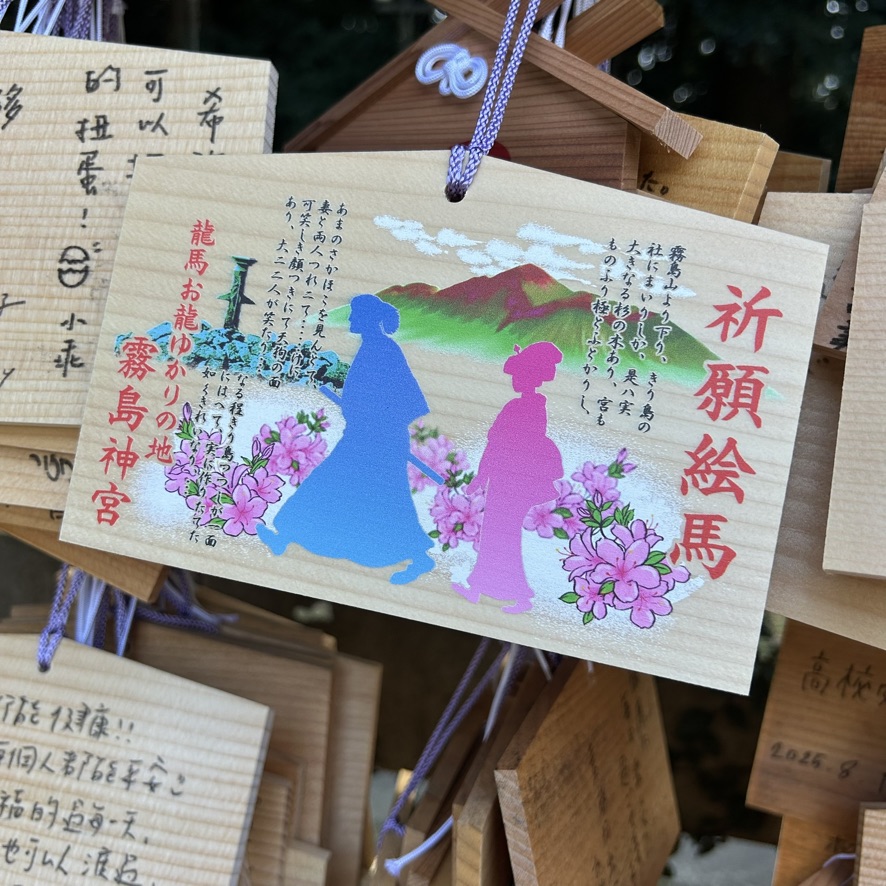 祈願絵馬
霧島山より下り、きり島の
社にまいりしが、是ハ実
大きなる杉の木あり、宮も
ものふり極とふとかりし、
あまのさかほこを見んとて、
妻と両人つれニて‥‥
可笑しき顔つきにて天狗の面
あり、大ニ二人が笑たり
なる程きり島つつじが一面
にはへて実に作りたてし
如くきれいなり
龍馬お龍ゆかりの地
霧島神宮
希
可以
的扭蛋!
小乖
都能健康!!
個人都能平安
福的過每一天,
也可以渡過
2025.8